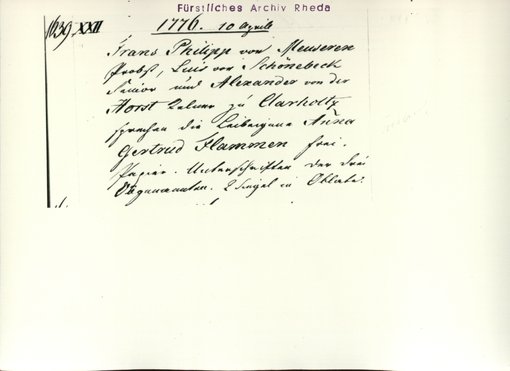 Fürstliches Archiv Rheda
1639. XXII
1776. 10 April
Franz Philipp von Meuseren
Probst, Luis von Schönebeck
Senior und Alexander von der
Horst Kelner zu Clarholtz
sprechen die Leibeigene Anna
Gertrud Flammen frei.
Papier. Unterschriften der drei
Obgenannten. 2 Siegel in Oblate.